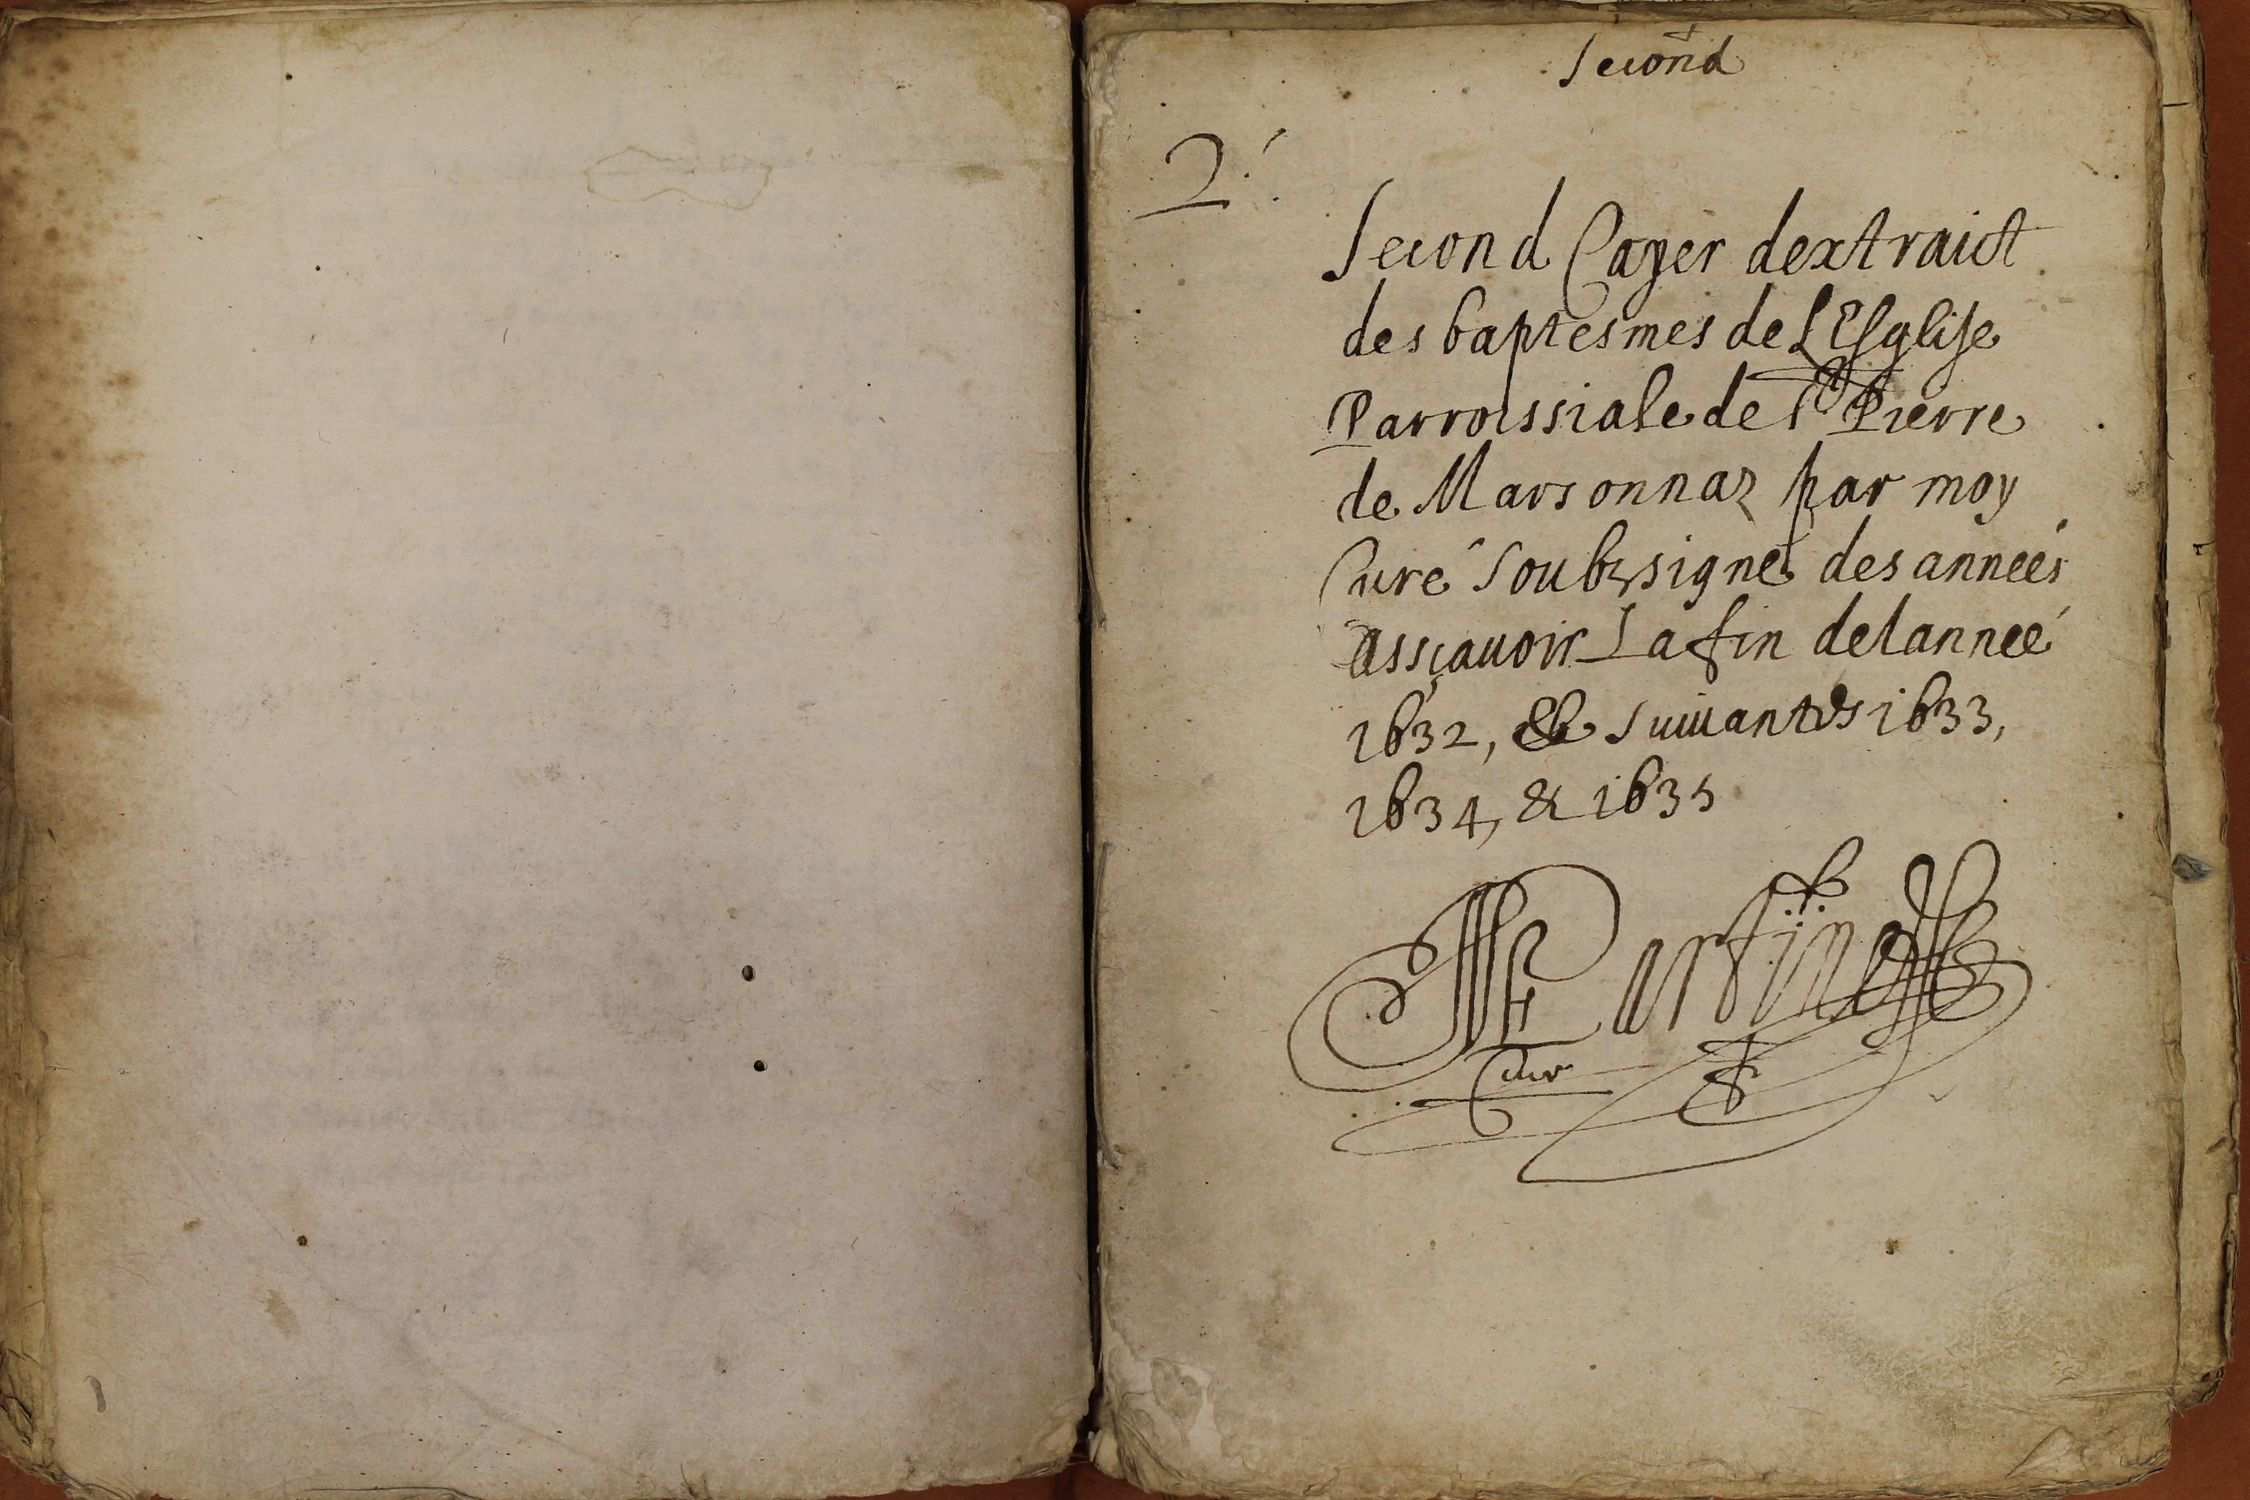 Second
2.
Second Cayer dextraict
des baptesmes de L'Esglise
Parroissiale de St Pierre
de Marsonnaz par moy
Curé Soubzsigné des anneés
assçauoir La fin de lanneé
1632, & Suiuantes 1633,
1634, & 1635
Cure